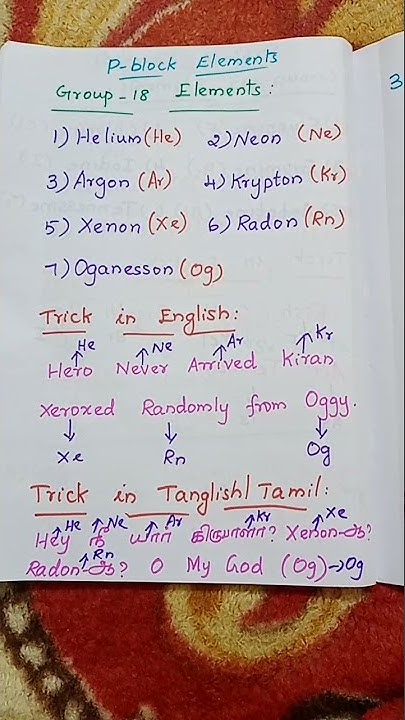 P-block Elements
Group-18 Elements:
1) Helium (He) 2) Neon (Ne)
3) Argon (Ar) 4) Krypton (Kr)
5) Xenon (Xe) 6) Radon (Rn)
7) Oganesson (Og)
Trick in English:
He Ne Ar Kr
Hero Never Arrived Kiran
Xeroxed Randomly from Oggy.
Xe Rn Og
Trick in Tanglish/Tamil:
He Ne Ar Kr Xe
Hey நீ யார் கிருபாளா? Xenon-ஆ?
Rn
Radon-ஆ? O My God (Og)→Og
3